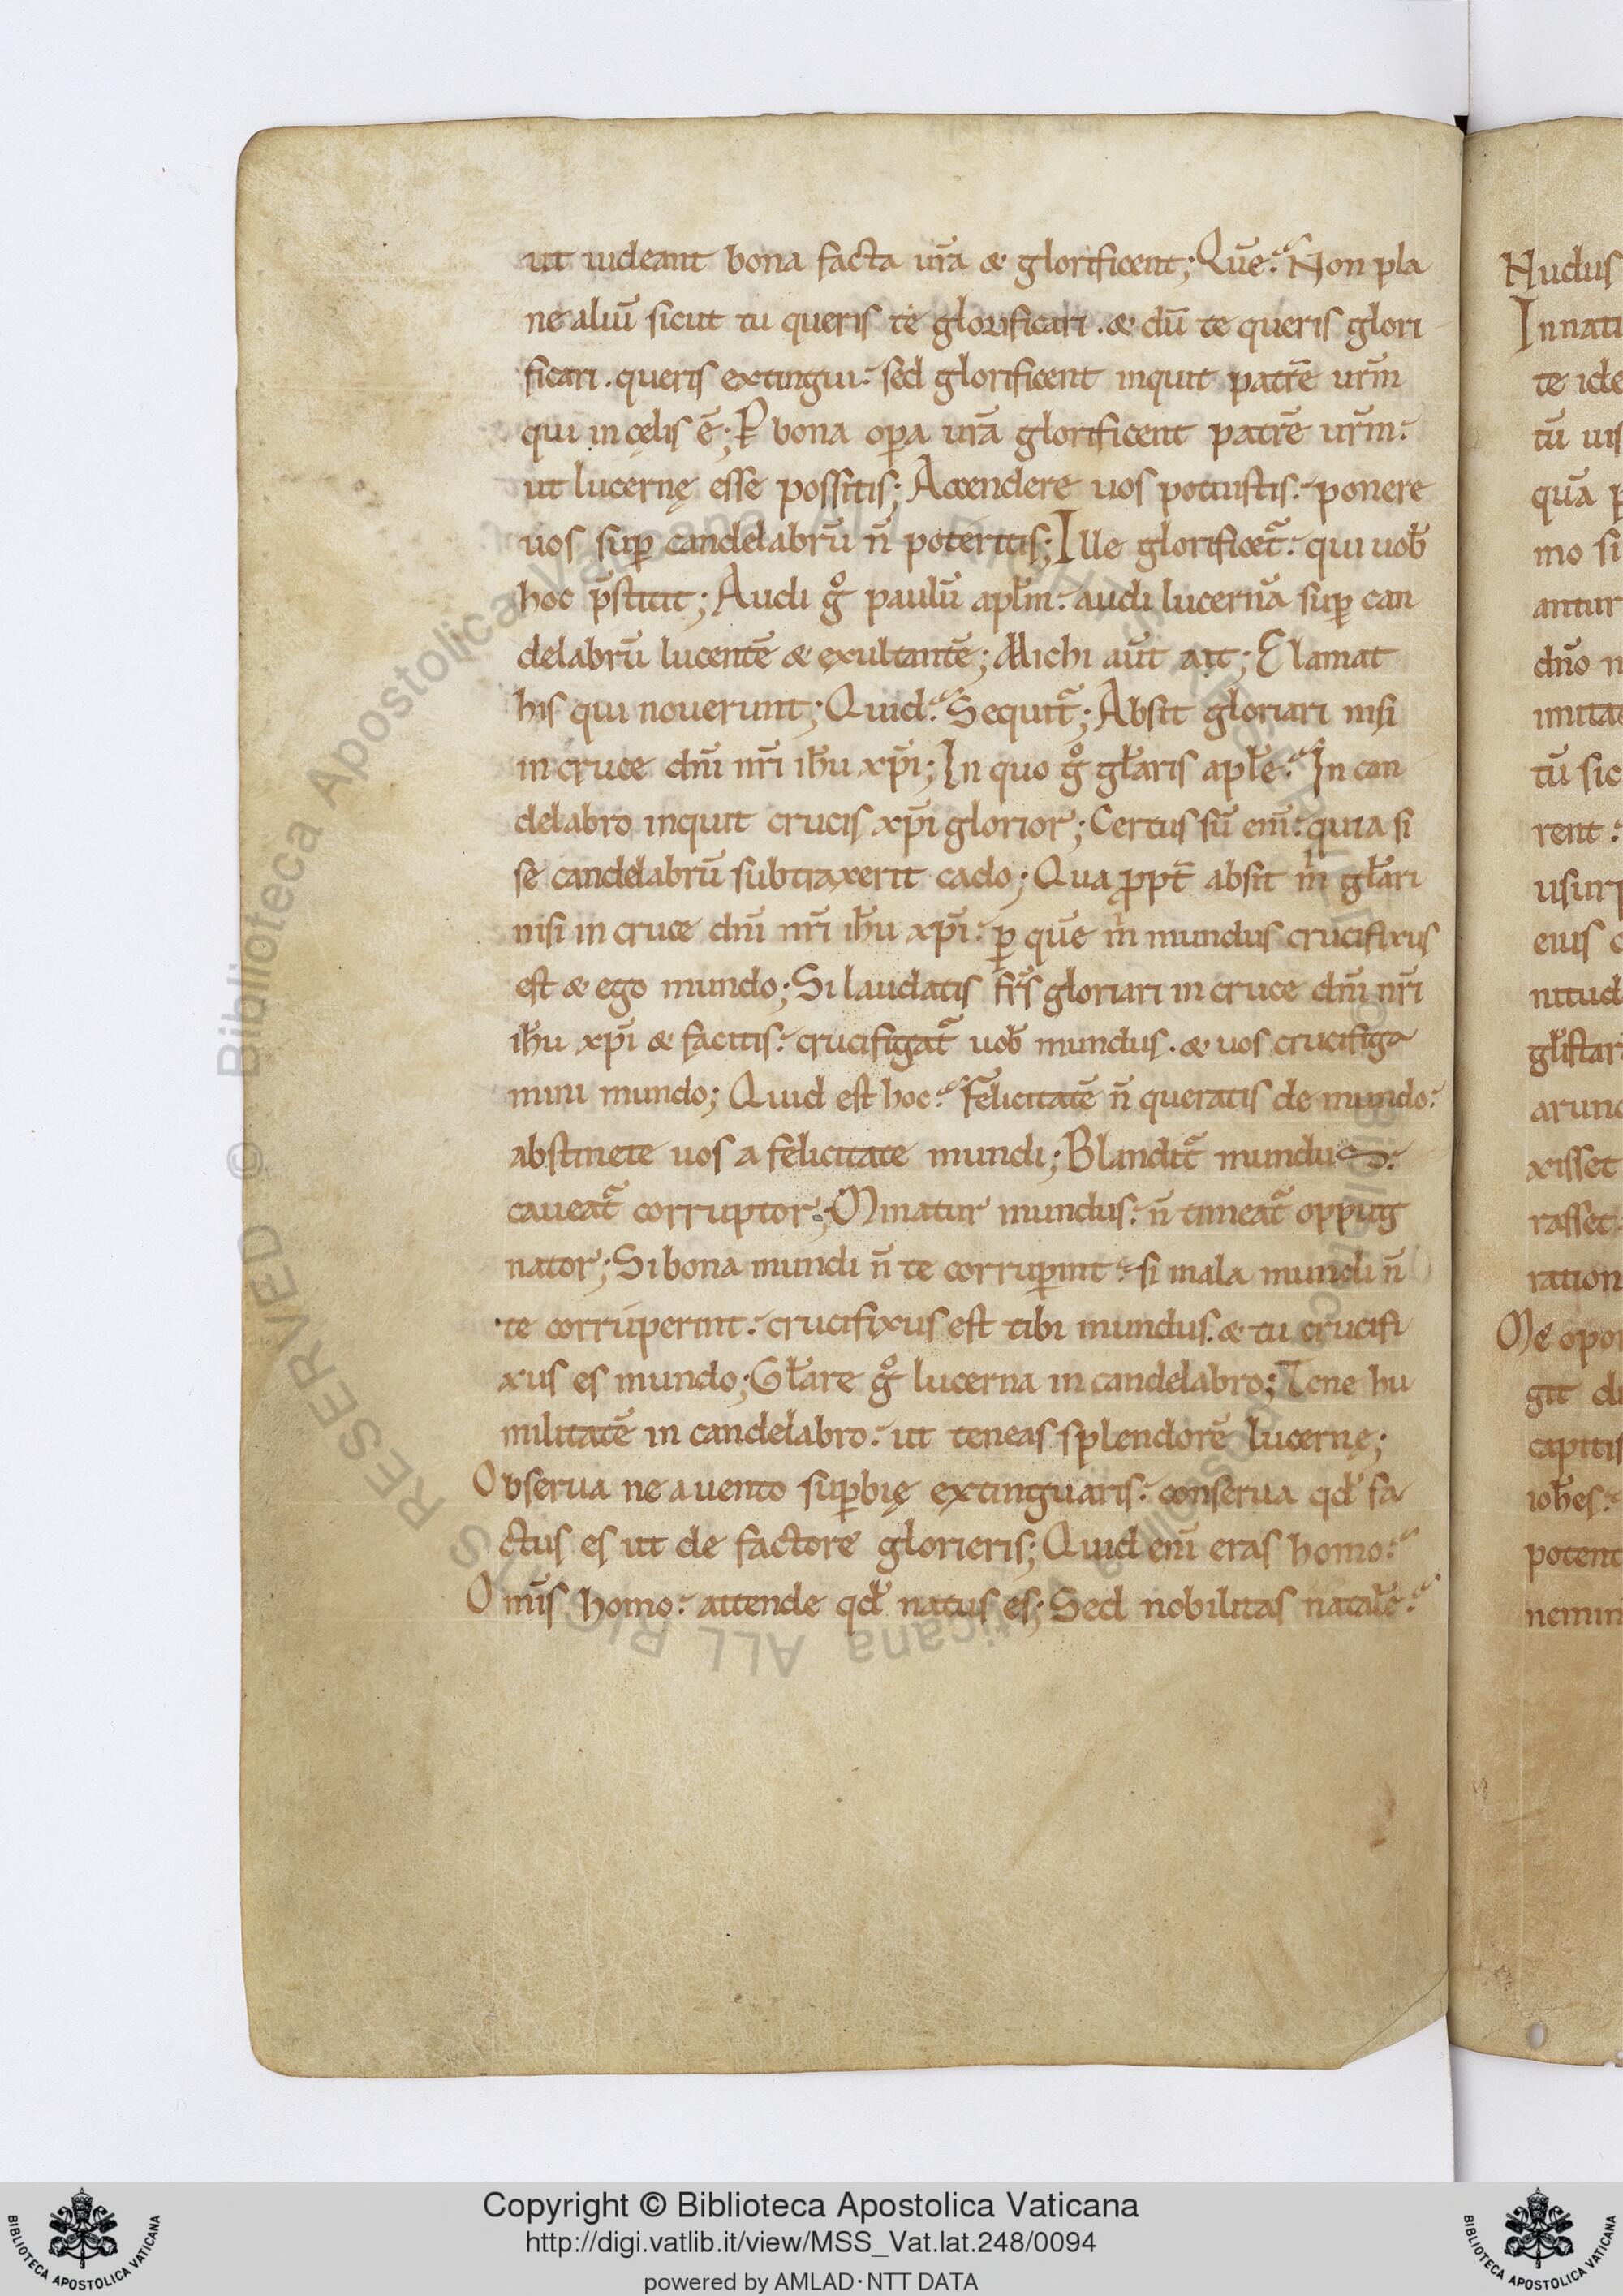 ut uideant bona facta ur̄a & glorificent; Quē? Non pla
ne aliū sicut tu queris te glorificari. & dū te queris glori
ficari. queris extingui. sed glorificent inquit patrē ur̄m
qui in cęlis ē; P bona oꝑa ur̄a glorificent patrē ur̄m.
ut lucernę esse possitis; Accendere uos potuistis. ponere
uos suꝑ candelabrū n̄ poteritis; Ille glorificet᷒. qui uob̄
hoc p̄stitit; Audi gͦ paulū apl̄m. audi lucernā suꝑ can
delabrū lucentē & exultantē; Michi aūt ait; Clamat
his qui nouerunt; Quid? Sequit᷒; Absit gloriari nisi
in cruce dn̄i nr̄i ih̄u xp̄i; In quo gͦ gl̄aris apl̄e? In can
delabro inquit crucis xp̄i glorior; Certus sū eni̅. quia si
se candelabrū subtraxerit cado; Qua ꝓpt̄ absit m̄ gl̄ari
nisi in cruce dn̄i nr̄i ih̄u xp̄i. ꝑ quē m̄ mundus crucifixus
est & ego mundo; Si laudatis fr̄s gloriari in cruce dn̄i nr̄i
ih̄u xp̄i & facitis. crucifigat᷒ uob̄ mundus. & uos crucifiga
mini mundo; Quid est hoc? Felicitatē n̄ queratis de mundo.
abstinete uos a felicitate mundi; Blandit᷒ mundus.
caueat᷒ corruptor; Minatur mundus. n̄ timeat᷒ oppug
nator; Si bona mundi n̄ te corruꝑint. si mala mundi n̄
te corruperint. crucifixus est tibi mundus. & tu crucifi
xus es mundo; Gl̄are gͦ lucerna in candelabro; Tene hu
militatē in candelabro. ut teneas splendorē lucernę;
Obserua ne a uento suꝑbię extinguaris. conserua qd̄ fa
ctus es ut de factore glorieris; Quid eni̅ eras homo?
Omīs homo. attende qd̄ natus es; Sed nobilitas natal̄e?
Nudus
Innati
te ide
tū uis
quā p
mo si
antur
dn̄o n
imitat
tū sic
rent.
usurp
eius c
nitud
gl̄istar
arund
xisset
rasset
ration
Me opor
git di
capitis
ioh̄es.
potent
nemin
© Biblioteca Apostolica Vaticana ALL RIGHTS RESERVED
Copyright © Biblioteca Apostolica Vaticana
http://digi.vatlib.it/view/MSS_Vat.lat.248/0094
powered by AMLAD·NTT DATA
BIBLIOTECA APOSTOLICA VATICANA
BIBLIOTECA APOSTOLICA VATICANA